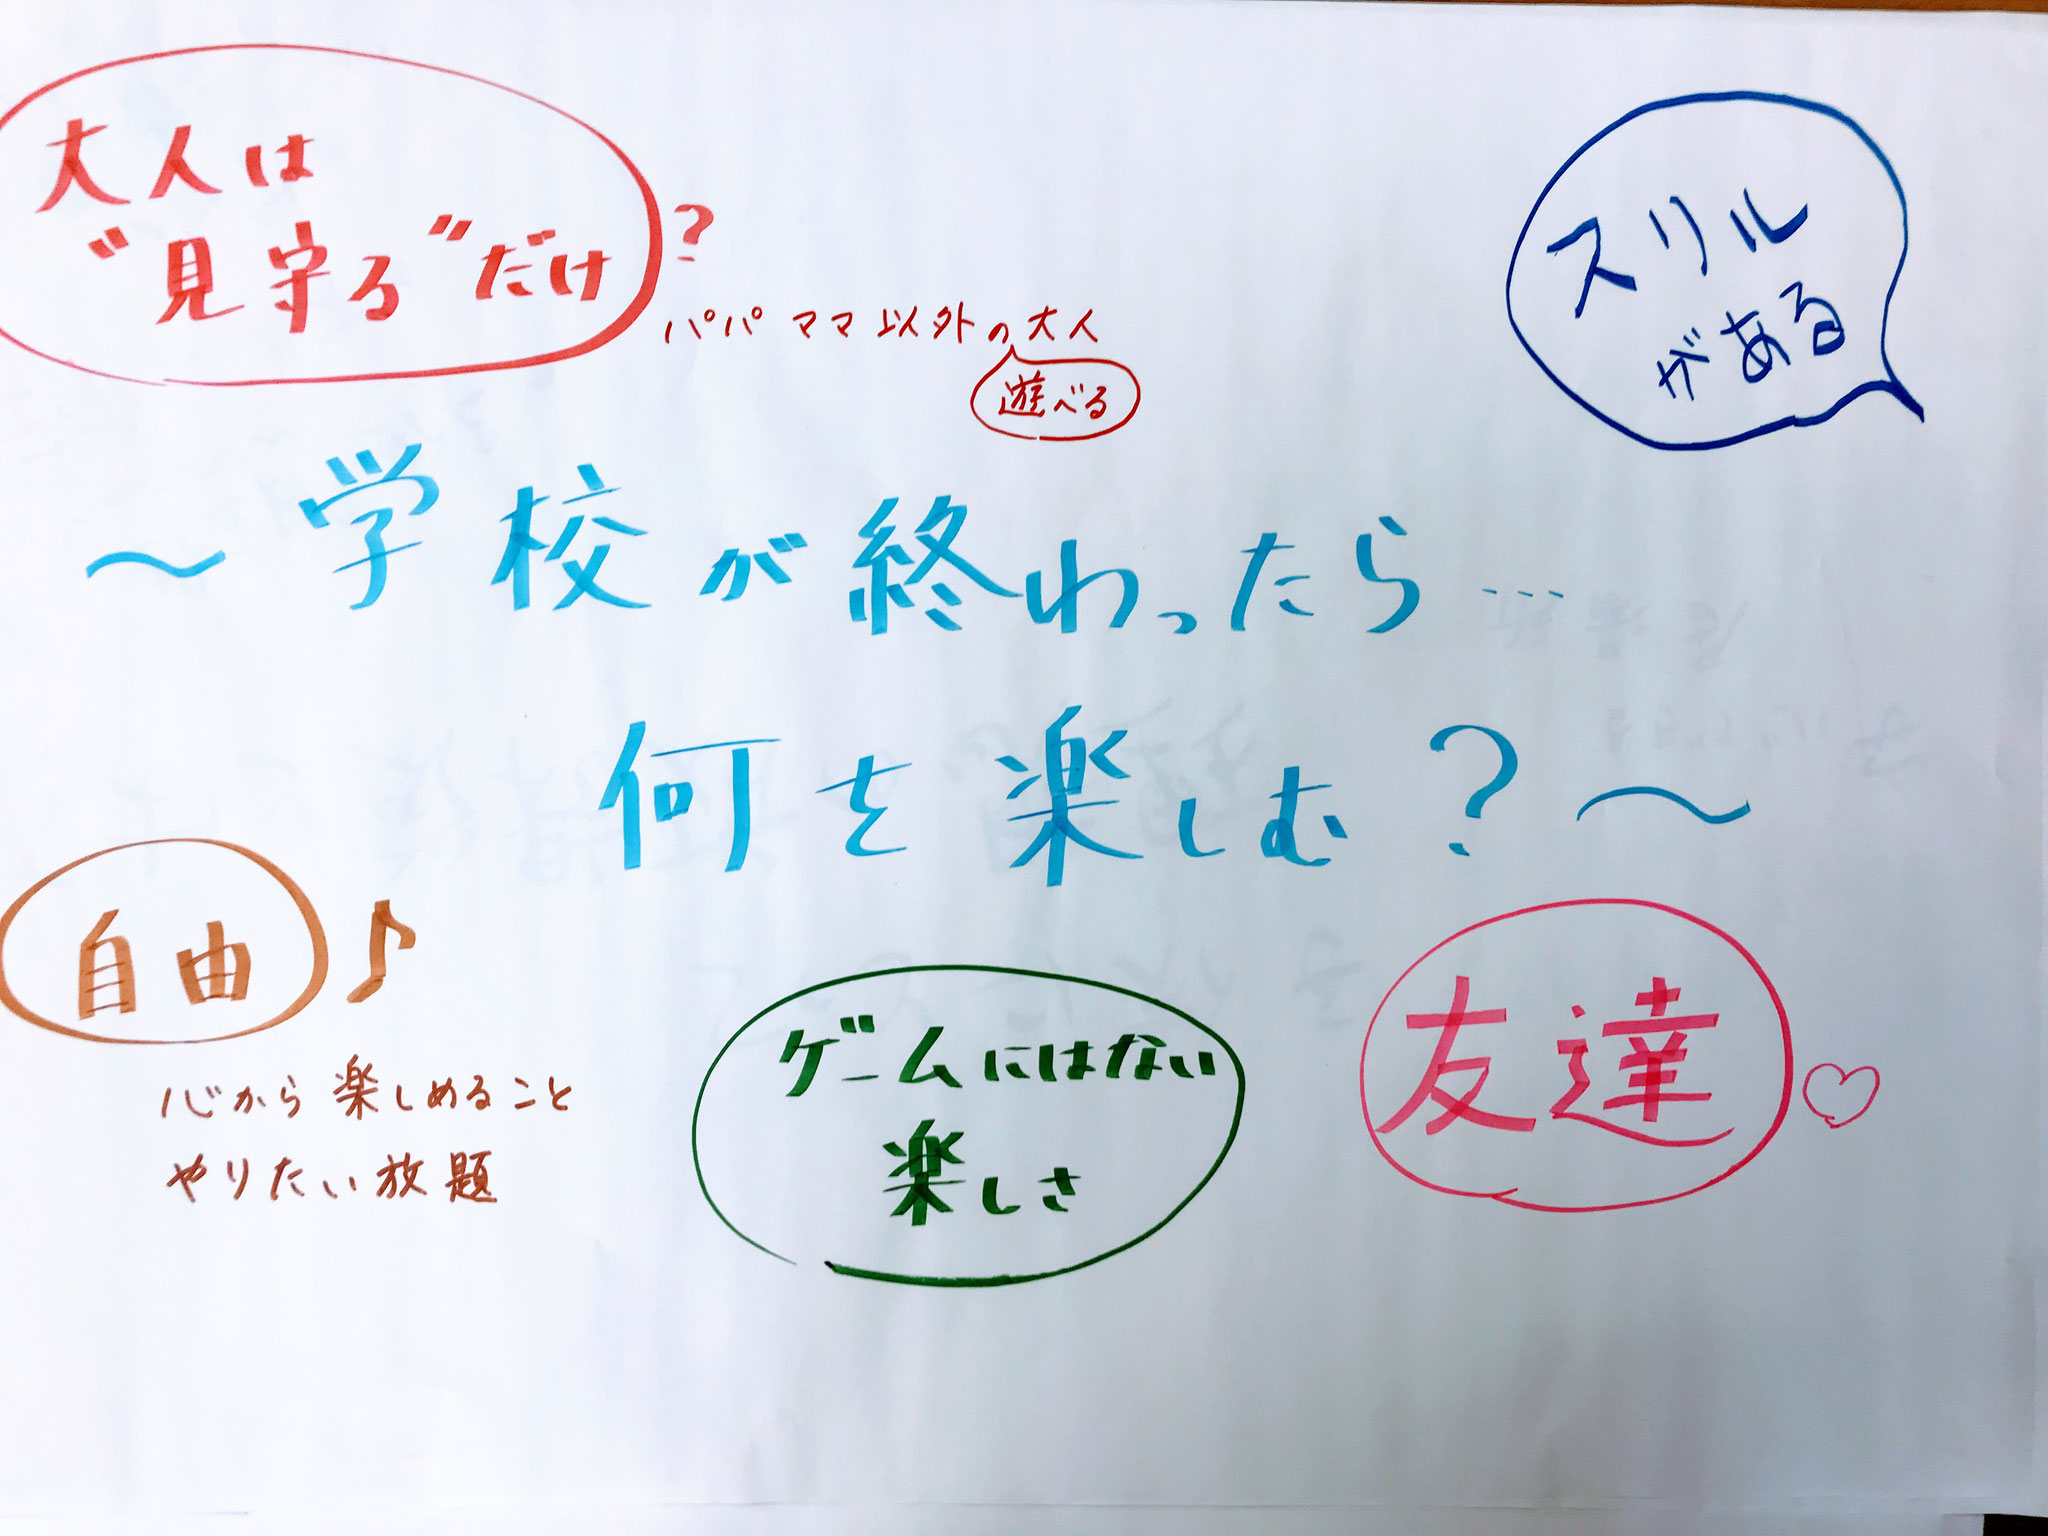 大人は
“見守る”だけ?
パパママ以外の大人
遊べる
スリル
がある
〜学校が終わったら…
何を楽しむ?〜
自由♪
心から楽しめること
やりたい放題
ゲームにはない
楽しさ
友達♡